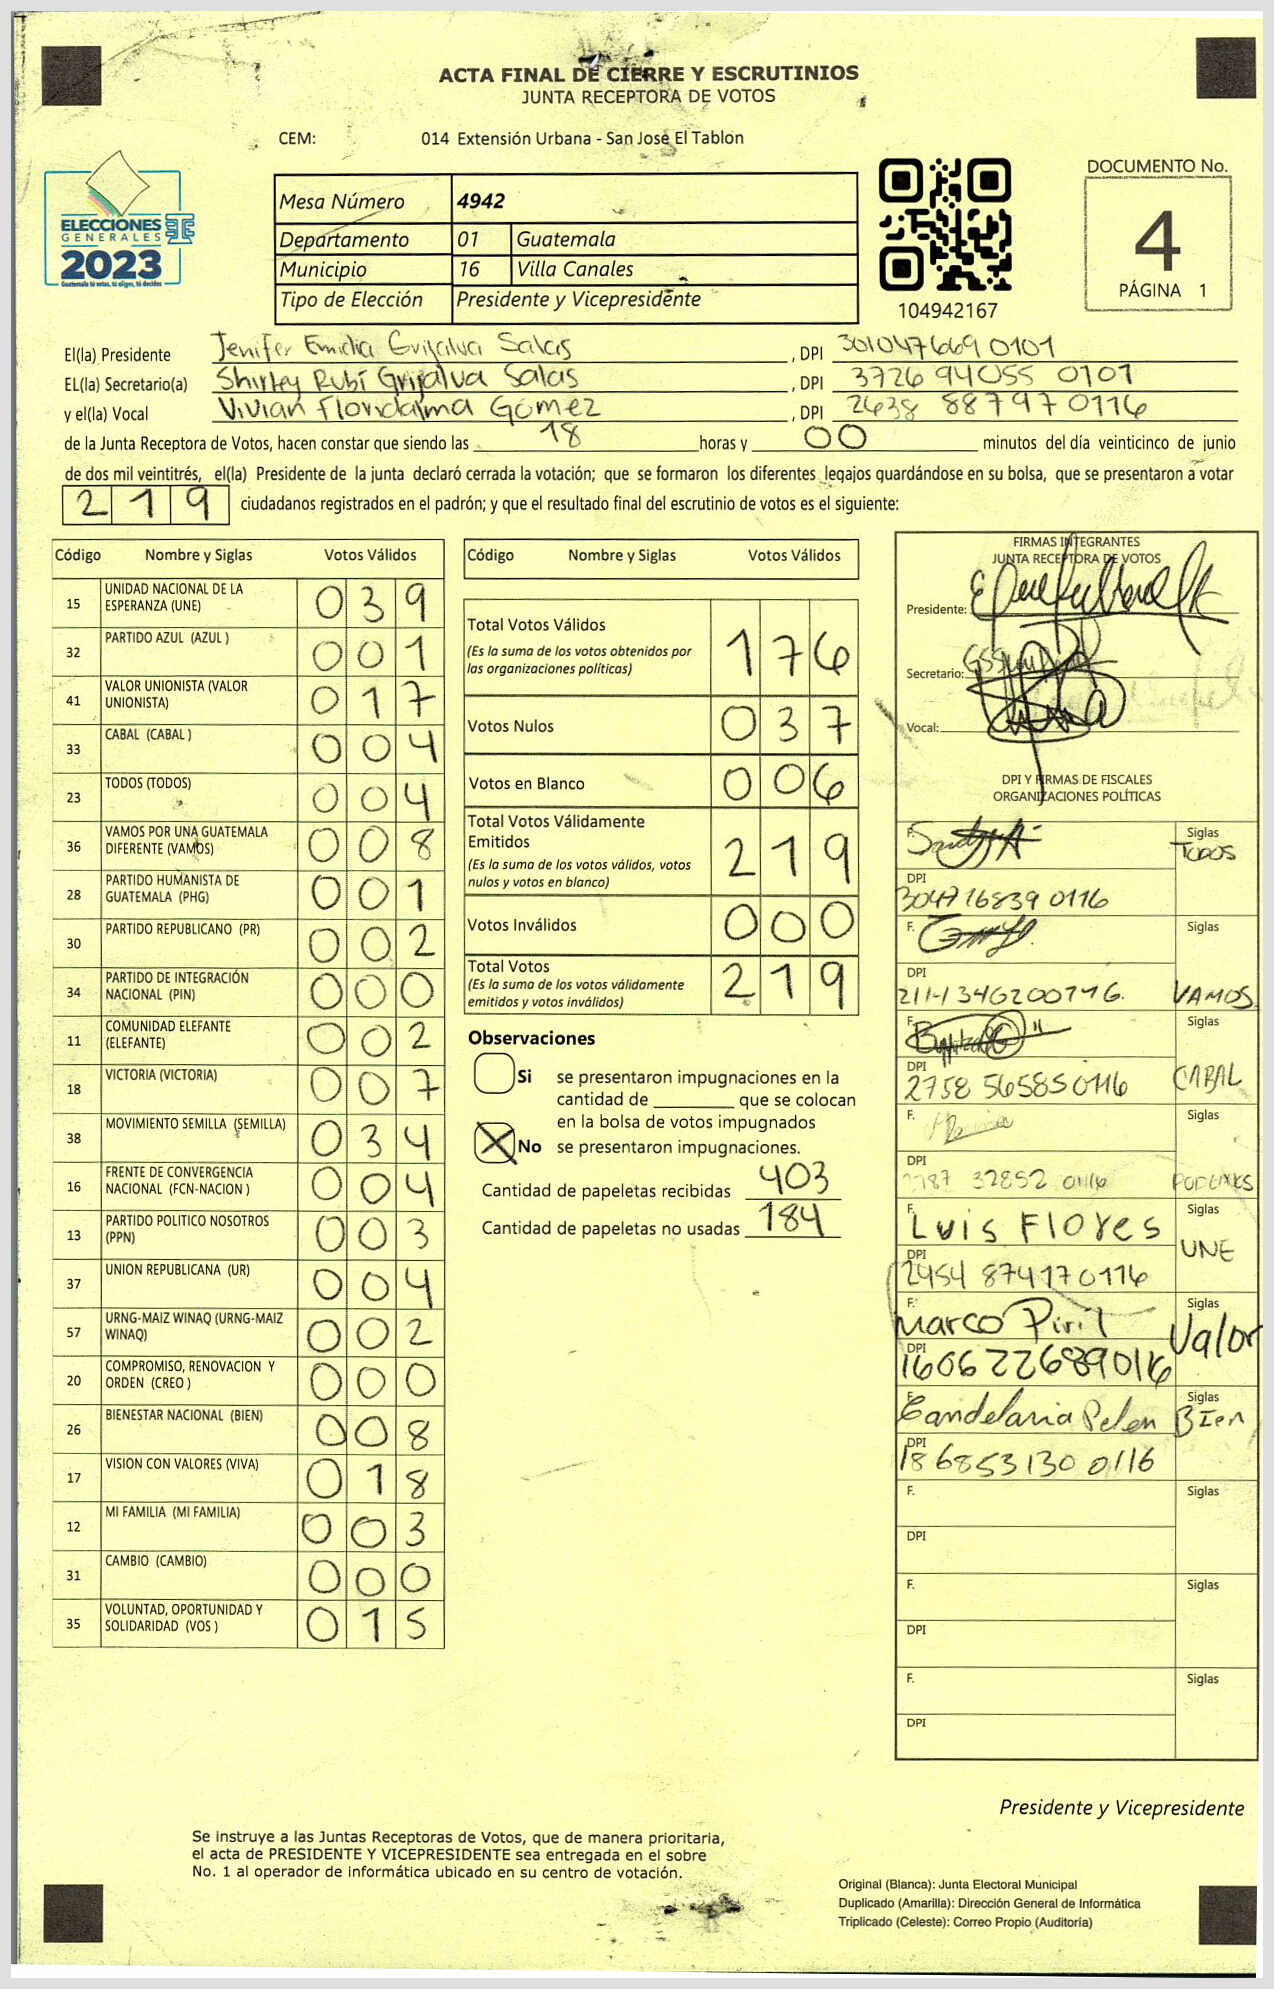 ACTA FINAL DE CIERRE Y ESCRUTINIOS
JUNTA RECEPTORA DE VOTOS
CEM: 014 Extensión Urbana - San José El Tablon
ELECCIONES
GENERALES
2023
Guatemala tú votas, tú eliges, tú decides
Mesa Número 4942
Departamento 01 Guatemala
Municipio 16 Villa Canales
Tipo de Elección Presidente y Vicepresidente
104942167
DOCUMENTO No.
4
PÁGINA 1
El(la) Presidente Jenifer Emilia Grijalva Salas, DPI 301047669 0101
EL(la) Secretario(a) Shirley Rubí Grijalva Salas, DPI 3726 94055 0101
y el(la) Vocal Vivian Floridalma Gómez, DPI 2638 88797 0116
de la Junta Receptora de Votos, hacen constar que siendo las 18 horas y 00 minutos del día veinticinco de junio
de dos mil veintitrés, el(la) Presidente de la junta declaró cerrada la votación; que se formaron los diferentes legajos guardándose en su bolsa, que se presentaron a votar
219 ciudadanos registrados en el padrón; y que el resultado final del escrutinio de votos es el siguiente:
Código Nombre y Siglas Votos Válidos
15 UNIDAD NACIONAL DE LA ESPERANZA (UNE) 039
32 PARTIDO AZUL (AZUL ) 001
41 VALOR UNIONISTA (VALOR UNIONISTA) 017
33 CABAL (CABAL ) 004
23 TODOS (TODOS) 004
36 VAMOS POR UNA GUATEMALA DIFERENTE (VAMOS) 008
28 PARTIDO HUMANISTA DE GUATEMALA (PHG) 001
30 PARTIDO REPUBLICANO (PR) 002
34 PARTIDO DE INTEGRACIÓN NACIONAL (PIN) 000
11 COMUNIDAD ELEFANTE (ELEFANTE) 002
18 VICTORIA (VICTORIA) 007
38 MOVIMIENTO SEMILLA (SEMILLA) 034
16 FRENTE DE CONVERGENCIA NACIONAL (FCN-NACION ) 004
13 PARTIDO POLITICO NOSOTROS (PPN) 003
37 UNION REPUBLICANA (UR) 004
57 URNG-MAIZ WINAQ (URNG-MAIZ WINAQ) 002
20 COMPROMISO, RENOVACION Y ORDEN (CREO ) 000
26 BIENESTAR NACIONAL (BIEN) 008
17 VISION CON VALORES (VIVA) 018
12 MI FAMILIA (MI FAMILIA) 003
31 CAMBIO (CAMBIO) 000
35 VOLUNTAD, OPORTUNIDAD Y SOLIDARIDAD (VOS ) 015
Código Nombre y Siglas Votos Válidos
Total Votos Válidos 176
(Es la suma de los votos obtenidos por
las organizaciones políticas)
Votos Nulos 037
Votos en Blanco 006
Total Votos Válidamente
Emitidos 219
(Es la suma de los votos válidos, votos
nulos y votos en blanco)
Votos Inválidos 000
Total Votos 219
(Es la suma de los votos válidamente
emitidos y votos inválidos)
Observaciones
Si se presentaron impugnaciones en la
cantidad de ________ que se colocan
en la bolsa de votos impugnados
X No se presentaron impugnaciones.
Cantidad de papeletas recibidas 403
Cantidad de papeletas no usadas 184
FIRMAS INTEGRANTES
JUNTA RECEPTORA DE VOTOS
Presidente:
Secretario:
Vocal:
DPI Y FIRMAS DE FISCALES
ORGANIZACIONES POLÍTICAS
F. Siglas TODOS
DPI 304716839 0116
F. Siglas VAMOS
DPI
F. Siglas CABAL
DPI 2758 56585 0116
F. Siglas PODEMOS
DPI 32852 0116
F. Luis Flores Siglas UNE
DPI 2454 87417 0116
F. Marco Piril Siglas Valor
DPI 1606226890116
F. Candelaria Pelen Siglas BIen
DPI 186853130 0116
F. Siglas
DPI
F. Siglas
DPI
F. Siglas
DPI
Presidente y Vicepresidente
Se instruye a las Juntas Receptoras de Votos, que de manera prioritaria,
el acta de PRESIDENTE Y VICEPRESIDENTE sea entregada en el sobre
No. 1 al operador de informática ubicado en su centro de votación.
Original (Blanca): Junta Electoral Municipal
Duplicado (Amarilla): Dirección General de Informática
Triplicado (Celeste): Correo Propio (Auditoría)